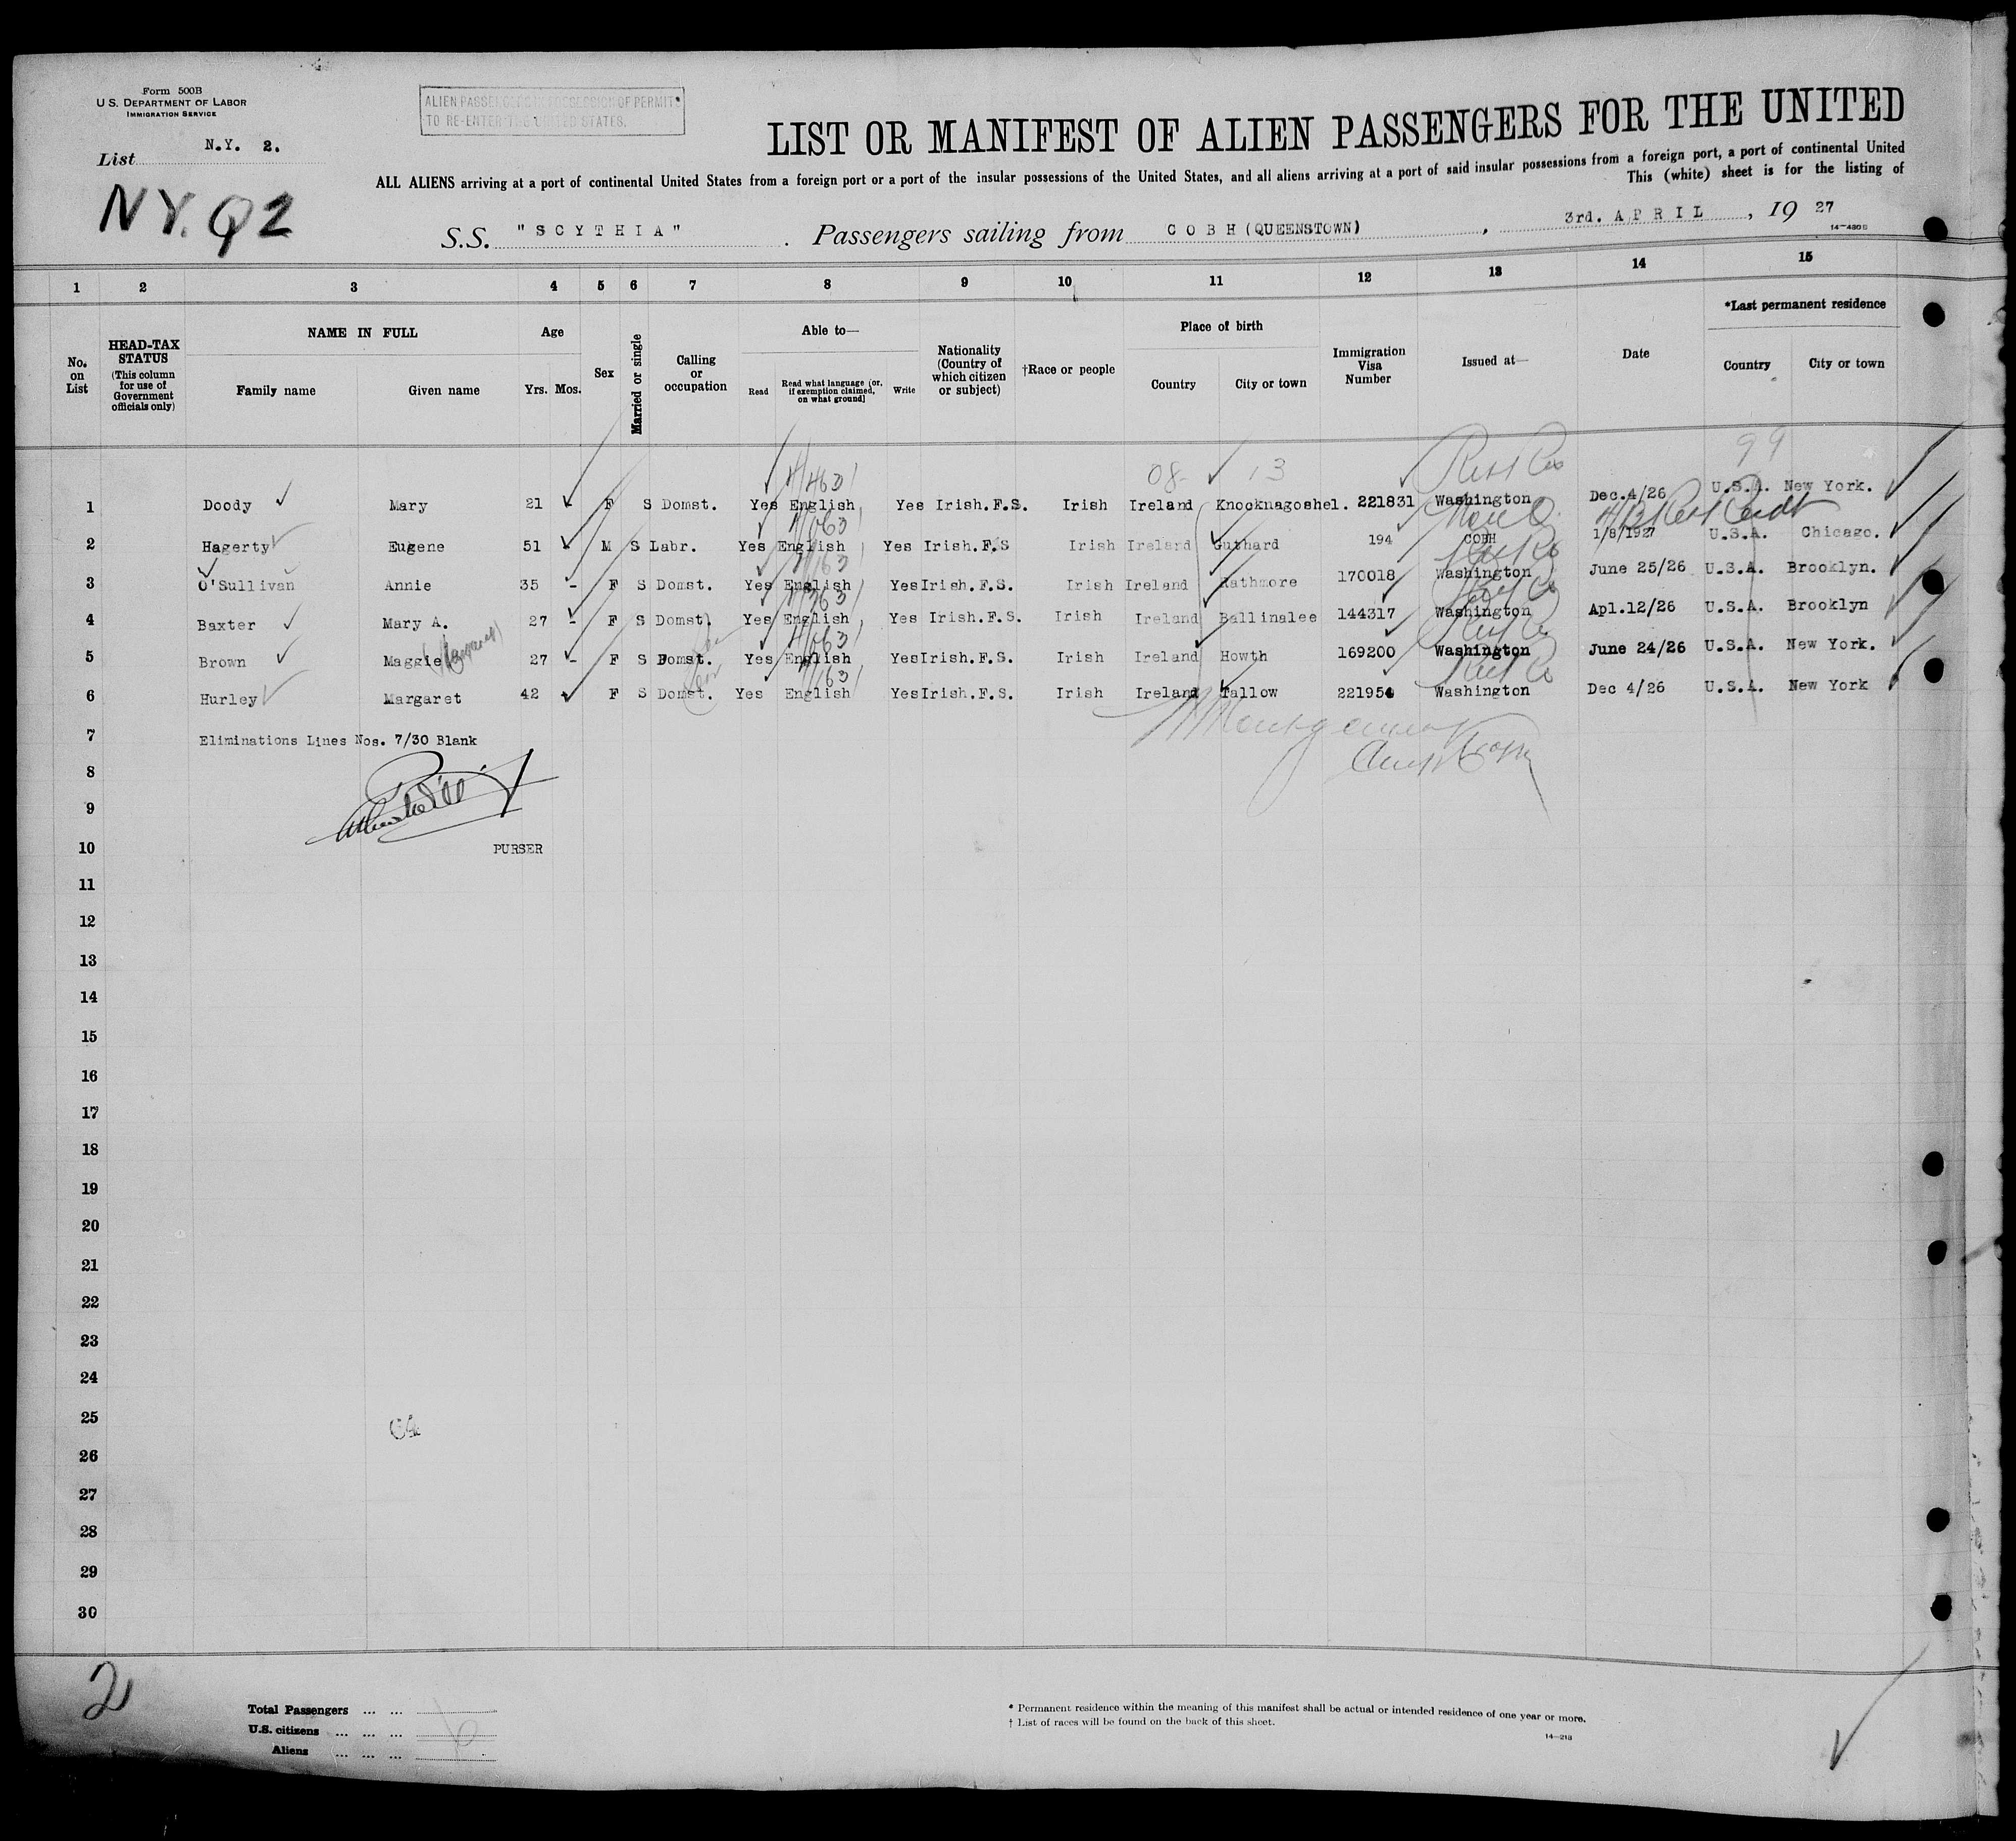 Form 500B
U.S. DEPARTMENT OF LABOR
IMMIGRATION SERVICE
ALIEN PASSENGERS IN POSSESSION OF PERMITS
TO RE-ENTER THE UNITED STATES.
List N.Y. 2.
NY. Q2
LIST OR MANIFEST OF ALIEN PASSENGERS FOR THE UNITED
ALL ALIENS arriving at a port of continental United States from a foreign port or a port of the insular possessions of the United States, and all aliens arriving at a port of said insular possessions from a foreign port, a port of continental United
This (white) sheet is for the listing of
S.S. "SCYTHIA". Passengers sailing from COBH (QUEENSTOWN), 3rd. APRIL, 1927
14-480 B
1 2 3 4 5 6 7 8 9 10 11 12 13 14 15
No. on List
HEAD-TAX STATUS (This column for use of Government officials only)
NAME IN FULL
Family name Given name
Age
Yrs. Mos.
Sex
Married or single
Calling or occupation
Able to—
Read Read what language (or, if exemption claimed, on what ground) Write
Nationality (Country of which citizen or subject)
†Race or people
Place of birth
Country City or town
Immigration Visa Number
Issued at—
Date
*Last permanent residence
Country City or town
08- 13 99
1 Doody Mary 21 F S Domst. Yes English Yes Irish.F.S. Irish Ireland Knocknagoshel. 221831 Washington Dec.4/26 U.S.A. New York.
2 Hagerty Eugene 51 - M S Labr. Yes English Yes Irish.F.S Irish Ireland Guthard 194 COBH 1/8/1927 U.S.A. Chicago.
3 O'Sullivan Annie 35 - F S Domst. Yes English Yes Irish.F.S. Irish Ireland Rathmore 170018 Washington June 25/26 U.S.A. Brooklyn.
4 Baxter Mary A. 27 - F S Domst. Yes English Yes Irish.F.S. Irish Ireland Ballinalee 144317 Washington Apl.12/26 U.S.A. Brooklyn
5 Brown Maggie (Margaret) 27 - F S Domst. Yes English Yes Irish.F.S. Irish Ireland Howth 169200 Washington June 24/26 U.S.A. New York.
6 Hurley Margaret 42 F S Domst. Yes English Yes Irish.F.S. Irish Ireland Tallow 221954 Washington Dec 4/26 U.S.A. New York
7 Eliminations Lines Nos. 7/30 Blank
8
9
10 PURSER
11
12
13
14
15
16
17
18
19
20
21
22
23
24
25
26
27
28
29
30
2
Total Passengers ... ...
U.S. citizens ... ... ...
Aliens ... ... ...
6
* Permanent residence within the meaning of this manifest shall be actual or intended residence of one year or more.
† List of races will be found on the back of this sheet.
14-213